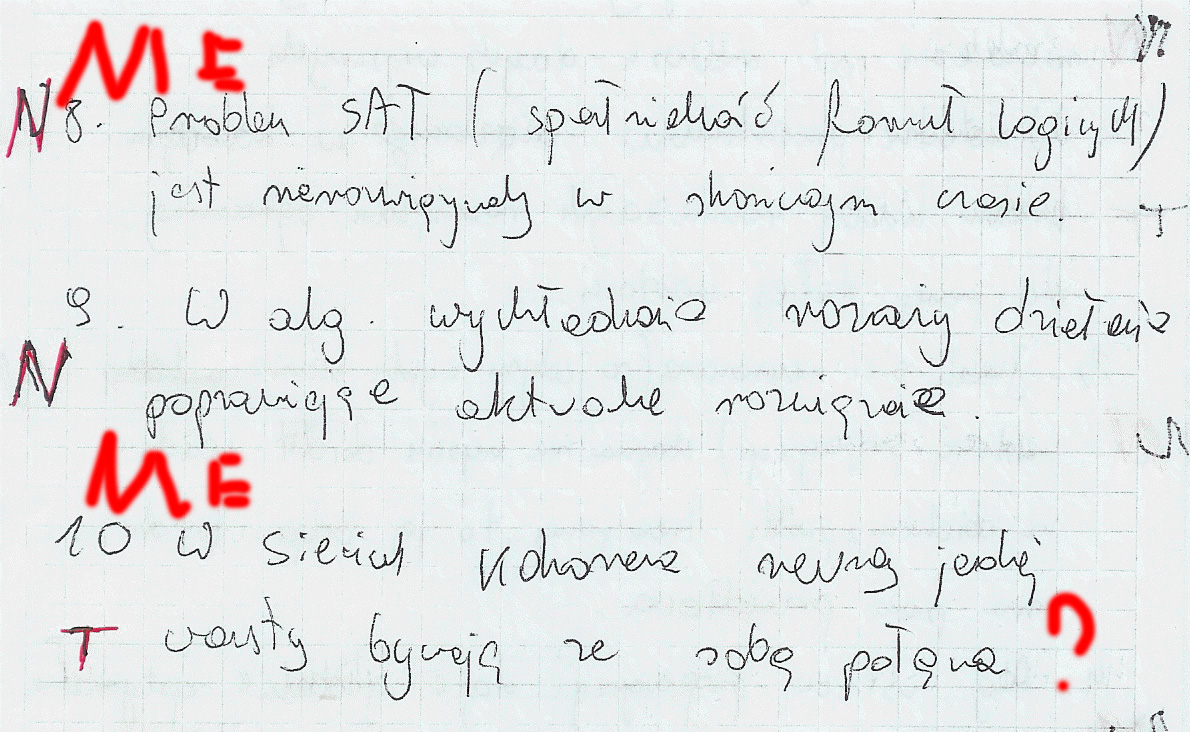 ME
N 8. Problem SAT (spełnialność formuł logicznych)
jest nierozwiązywalny w skończonym czasie.
T
9. W alg. wyżarzania rozważamy działanie
N
poprawiające aktualne rozwiązanie.
ME
10 W sieciach Kohonena neurony jednej
T warstwy bywają ze sobą połączone ?